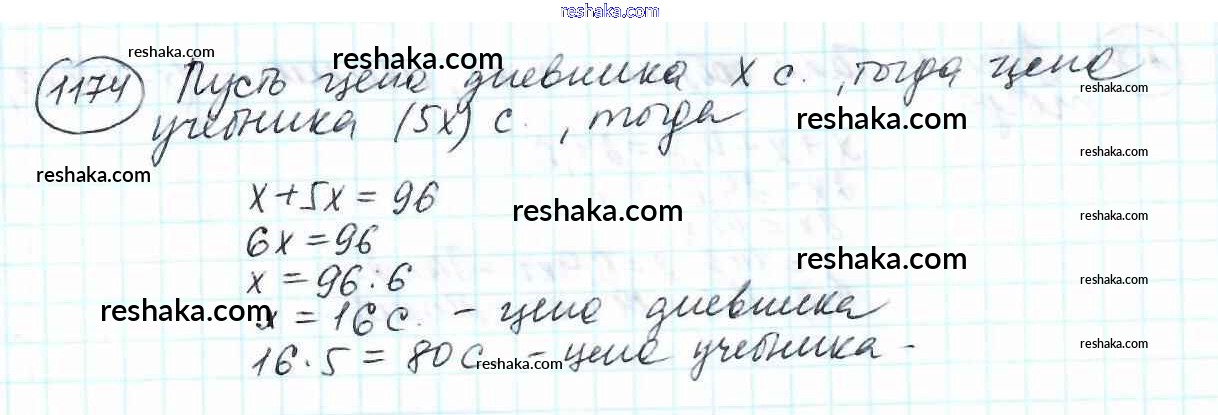 reshaka.com
reshaka.com reshaka.com
1174 Пусть цена дневника х с., тогда цена
reshaka.com
учебника (5х) с., тогда
reshaka.com
reshaka.com
reshaka.com
х+5х=96
reshaka.com
reshaka.com
6х=96
reshaka.com
х=96:6
reshaka.com
х=16с. - цена дневника
reshaka.com
16·5=80с - цена учебника.
reshaka.com
reshaka.com